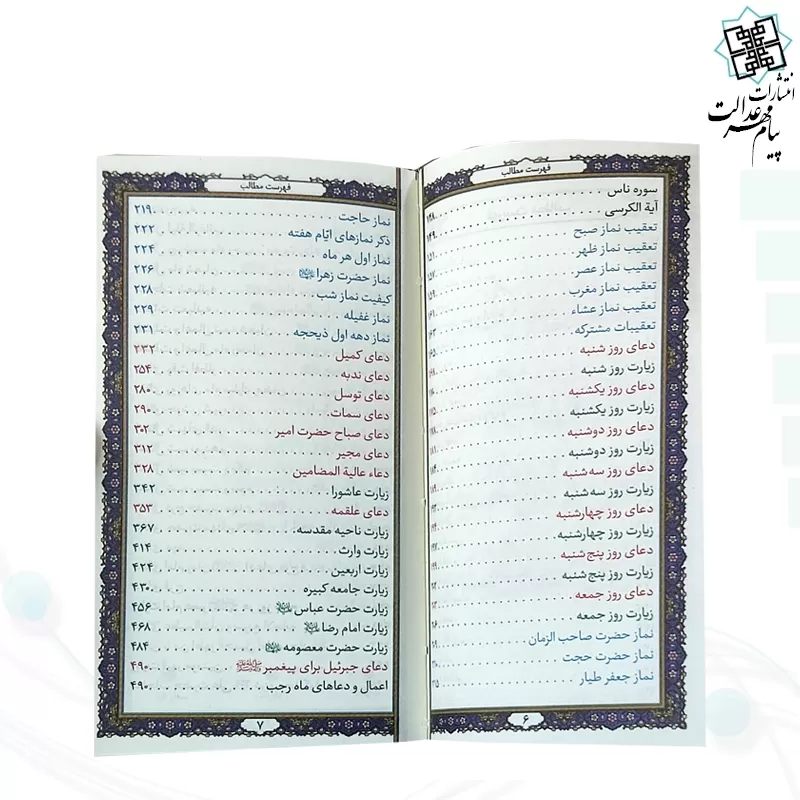 انتشارات
پیام مهر عدالت
فهرست مطالب
سوره ناس
آیة الکرسی ۱۴۸
تعقیب نماز صبح ۱۴۹
تعقیب نماز ظهر ۱۵۱
تعقیب نماز عصر ۱۵۷
تعقیب نماز مغرب ۱۵۹
تعقیب نماز عشاء ۱۶۱
تعقیبات مشترکه ۱۶۳
دعای روز شنبه ۱۶۵
زیارت روز شنبه
دعای روز یکشنبه
زیارت روز یکشنبه
دعای روز دوشنبه
زیارت روز دوشنبه
دعای روز سه‌شنبه
زیارت روز سه‌شنبه
دعای روز چهارشنبه
زیارت روز چهارشنبه
دعای روز پنج‌شنبه
زیارت روز پنج‌شنبه
دعای روز جمعه
زیارت روز جمعه
نماز حضرت صاحب الزمان
نماز حضرت حجت
نماز جعفر طیار
۶
فهرست مطالب
نماز حاجت ۲۱۹
ذکر نمازهای ایّام هفته ۲۲۲
نماز اول هر ماه ۲۲۴
نماز حضرت زهرا ۲۲۶
کیفیت نماز شب ۲۲۸
نماز غفیله ۲۲۹
نماز دهه اول ذیحجه ۲۳۱
دعای کمیل ۲۳۲
دعای ندبه ۲۵۴
دعای توسل ۲۸۰
دعای سمات ۲۹۰
دعای صباح حضرت امیر ۳۰۲
دعای مجیر ۳۱۲
دعاء عالیة المضامین ۳۲۸
زیارت عاشورا ۳۴۲
دعای علقمه ۳۵۳
زیارت ناحیه مقدسه ۳۶۷
زیارت وارث ۴۱۴
زیارت اربعین ۴۲۴
زیارت جامعه کبیره ۴۳۰
زیارت حضرت عباس ۴۵۶
زیارت امام رضا ۴۶۸
زیارت حضرت معصومه ۴۸۴
دعای جبرئیل برای پیغمبر ۴۹۰
اعمال و دعاهای ماه رجب ۴۹۰
۷